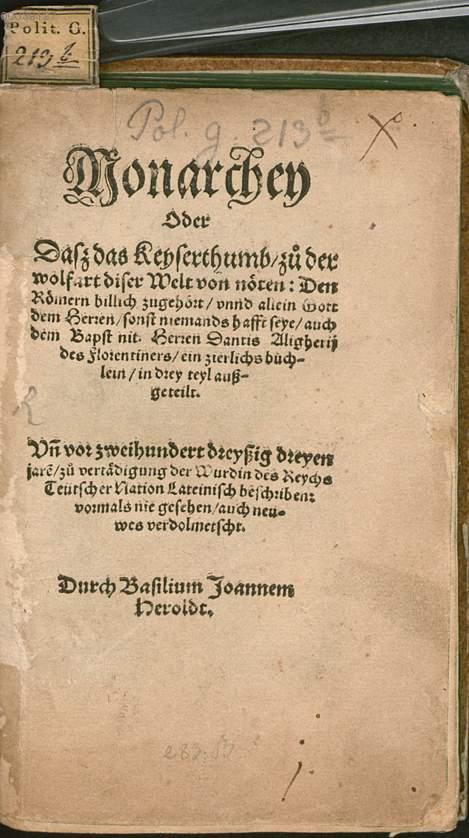 Polit. G.
213 b
Pol. g. 213 b
Monarchey
Oder
Dasz das Keyserthumb / zů der
wolfart diser Welt von nöten: Den
Römern billich zugehört / vnnd allein Gott
dem Herren / sonst niemands hafft seye / auch
dem Bapst nit. Herren Dantis Aligherij
des Florentiners / ein zierlichs büch-
lein / in drey teyl auß-
geteilt.
Vñ vor zweihundert dreyßig dreyen
jarē / zů vertädigung der Wurdin des Reychs
Teütscher Nation Lateinisch beschriben:
vormals nie gesehen / auch neu-
wes verdolmetscht.
Durch Basilium Joannem
Heroldt.